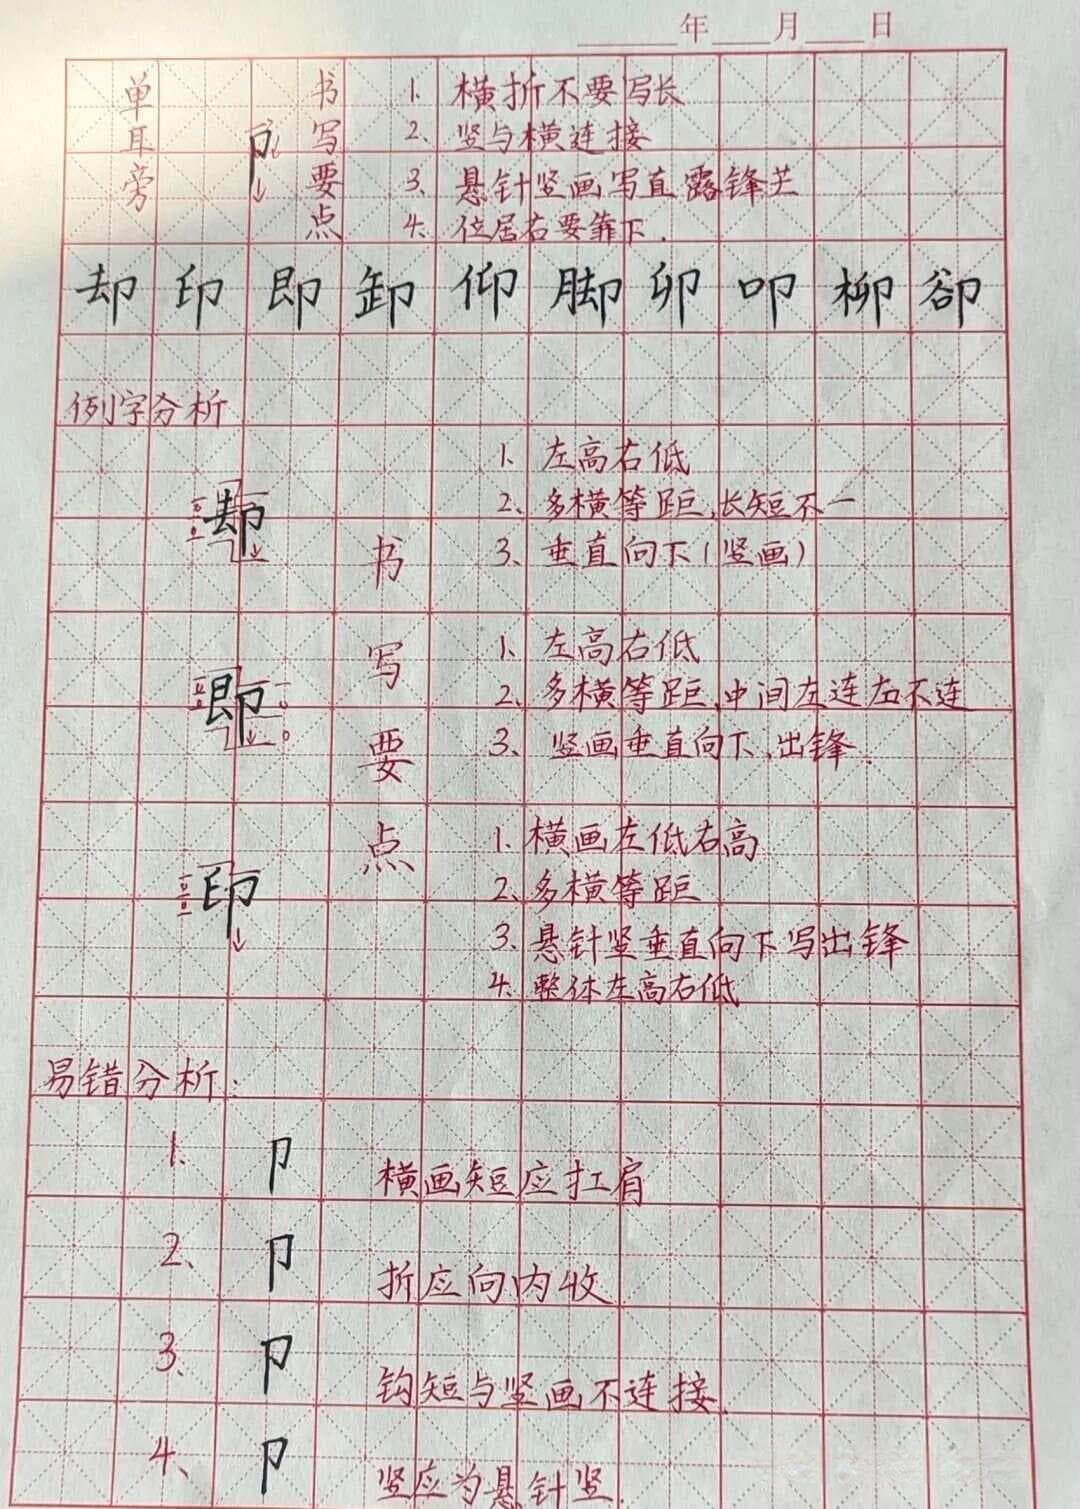 年 月 日
单耳旁
卩
书写要点
1. 横折不要写长
2、竖与横连接
3、悬针竖画写直露锋芒
4、位居右要靠下.
却印即卸仰脚卯叩柳卻
例字分析
书写要点
却
1、左高右低
2、多横等距,长短不一
3、垂直向下(竖画)
即
1、左高右低
2、多横等距,中间左连右不连
3、竖画垂直向下,出锋.
印
1.横画左低右高
2、多横等距
3、悬针竖垂直向下写出锋
4、整体左高右低
易错分析:
1、卩 横画短应扛肩
2、卩 折应向内收
3、卩 钩短与竖画不连接.
4、卩 竖应为悬针竖.